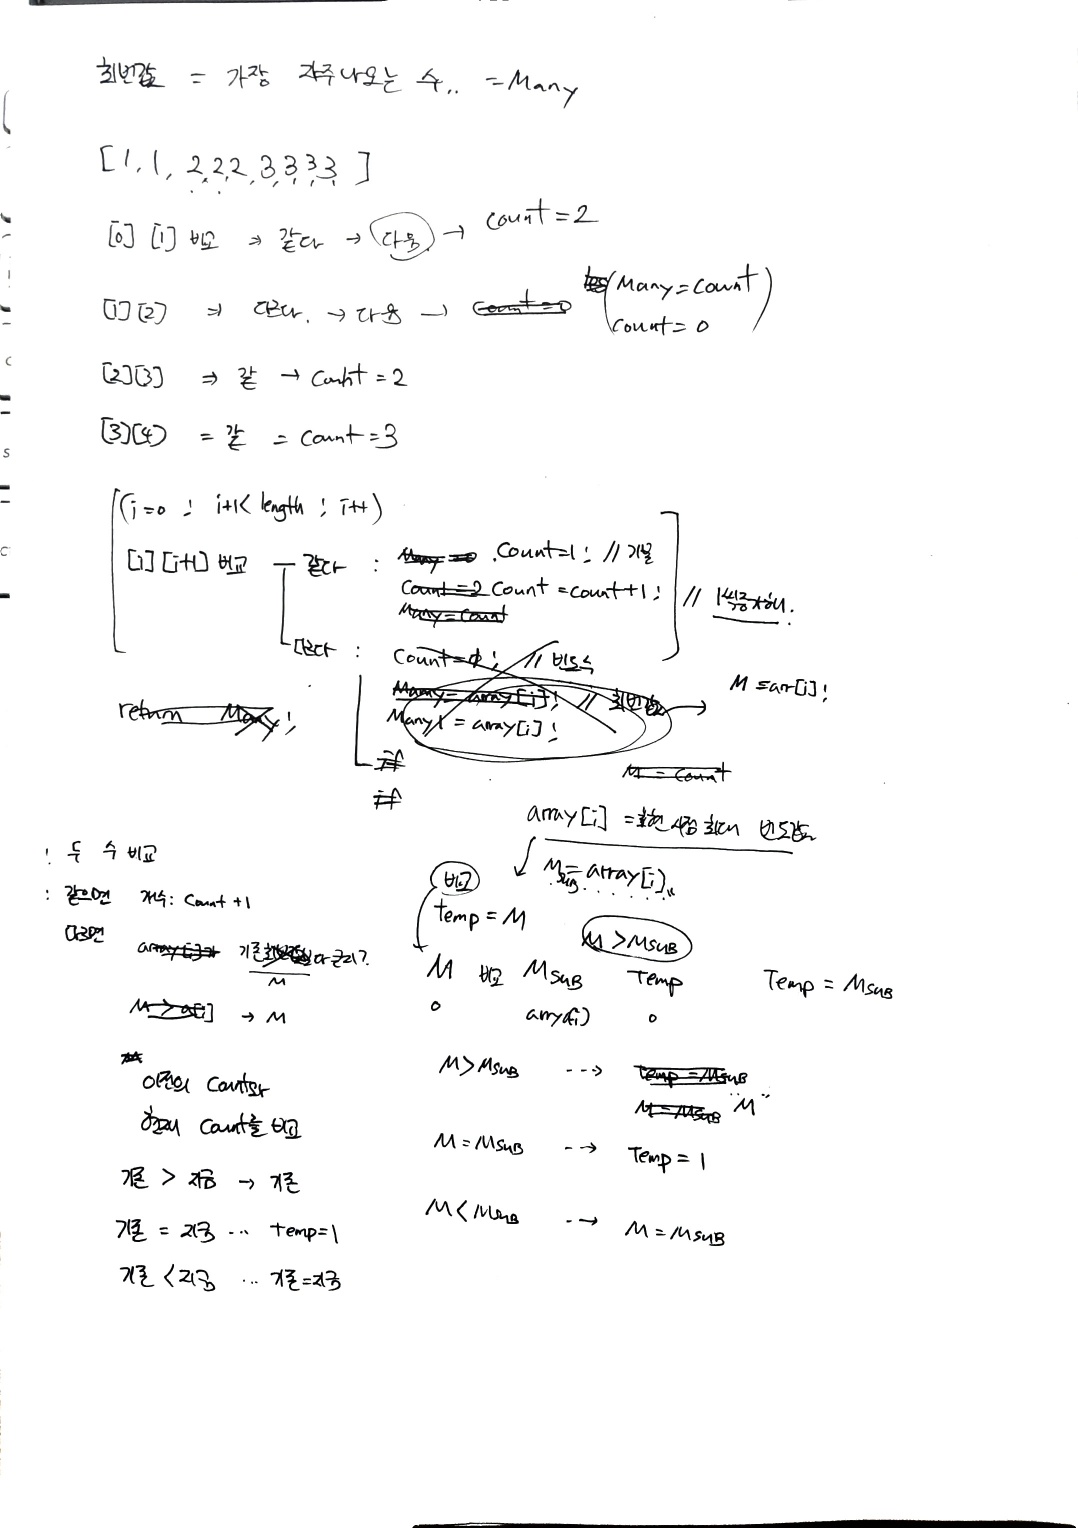 최빈값 = 가장 자주나오는 수.. = Many
[1, 1, 2, 2, 2, 3, 3, 3, 3]
[0] [1] 비교 ⇒ 같다 → 다음 → count = 2
[1] [2] ⇒ 다르다. → 다음 → count = 0 (Many = count
count = 0)
[2][3] ⇒ 같 → count = 2
[3][4] = 같 = count = 3
(i=0 ; i+1< length ; i++)
[i] [i+1] 비교 - 같다 : Many = 0 Count=1; // 기본
Count = 2 Count = count+1; // 1씩증가해.
Many = Count
다르다 : Count = 0; // 빈도수
Many = array[i]; // 최빈값 → M = arr[i];
return Many;
Many = array[i];
if
M = Count
if
array[i] = 현시점 최대 빈도값
! 두 수 비교
M = array[i]
sub
: 같으면 개수: Count +1
비교
temp = M
다르면
M > MSUB
array[i]가 기존 보다 큰지?
M
M 비교 MSUB Temp Temp = MSUB
0 array(i) 0
M > a[i] → M
M > MSUB --→ temp = MSUB
이전의 Count와
M = MSUB "M"
현재 Count를 비교
M = MSUB --→ Temp = 1
기존 > 지금 → 기존
M < MSUB --→ M = MSUB
기존 = 지금 ... temp=1
기존 < 지금 ... 기존=지금